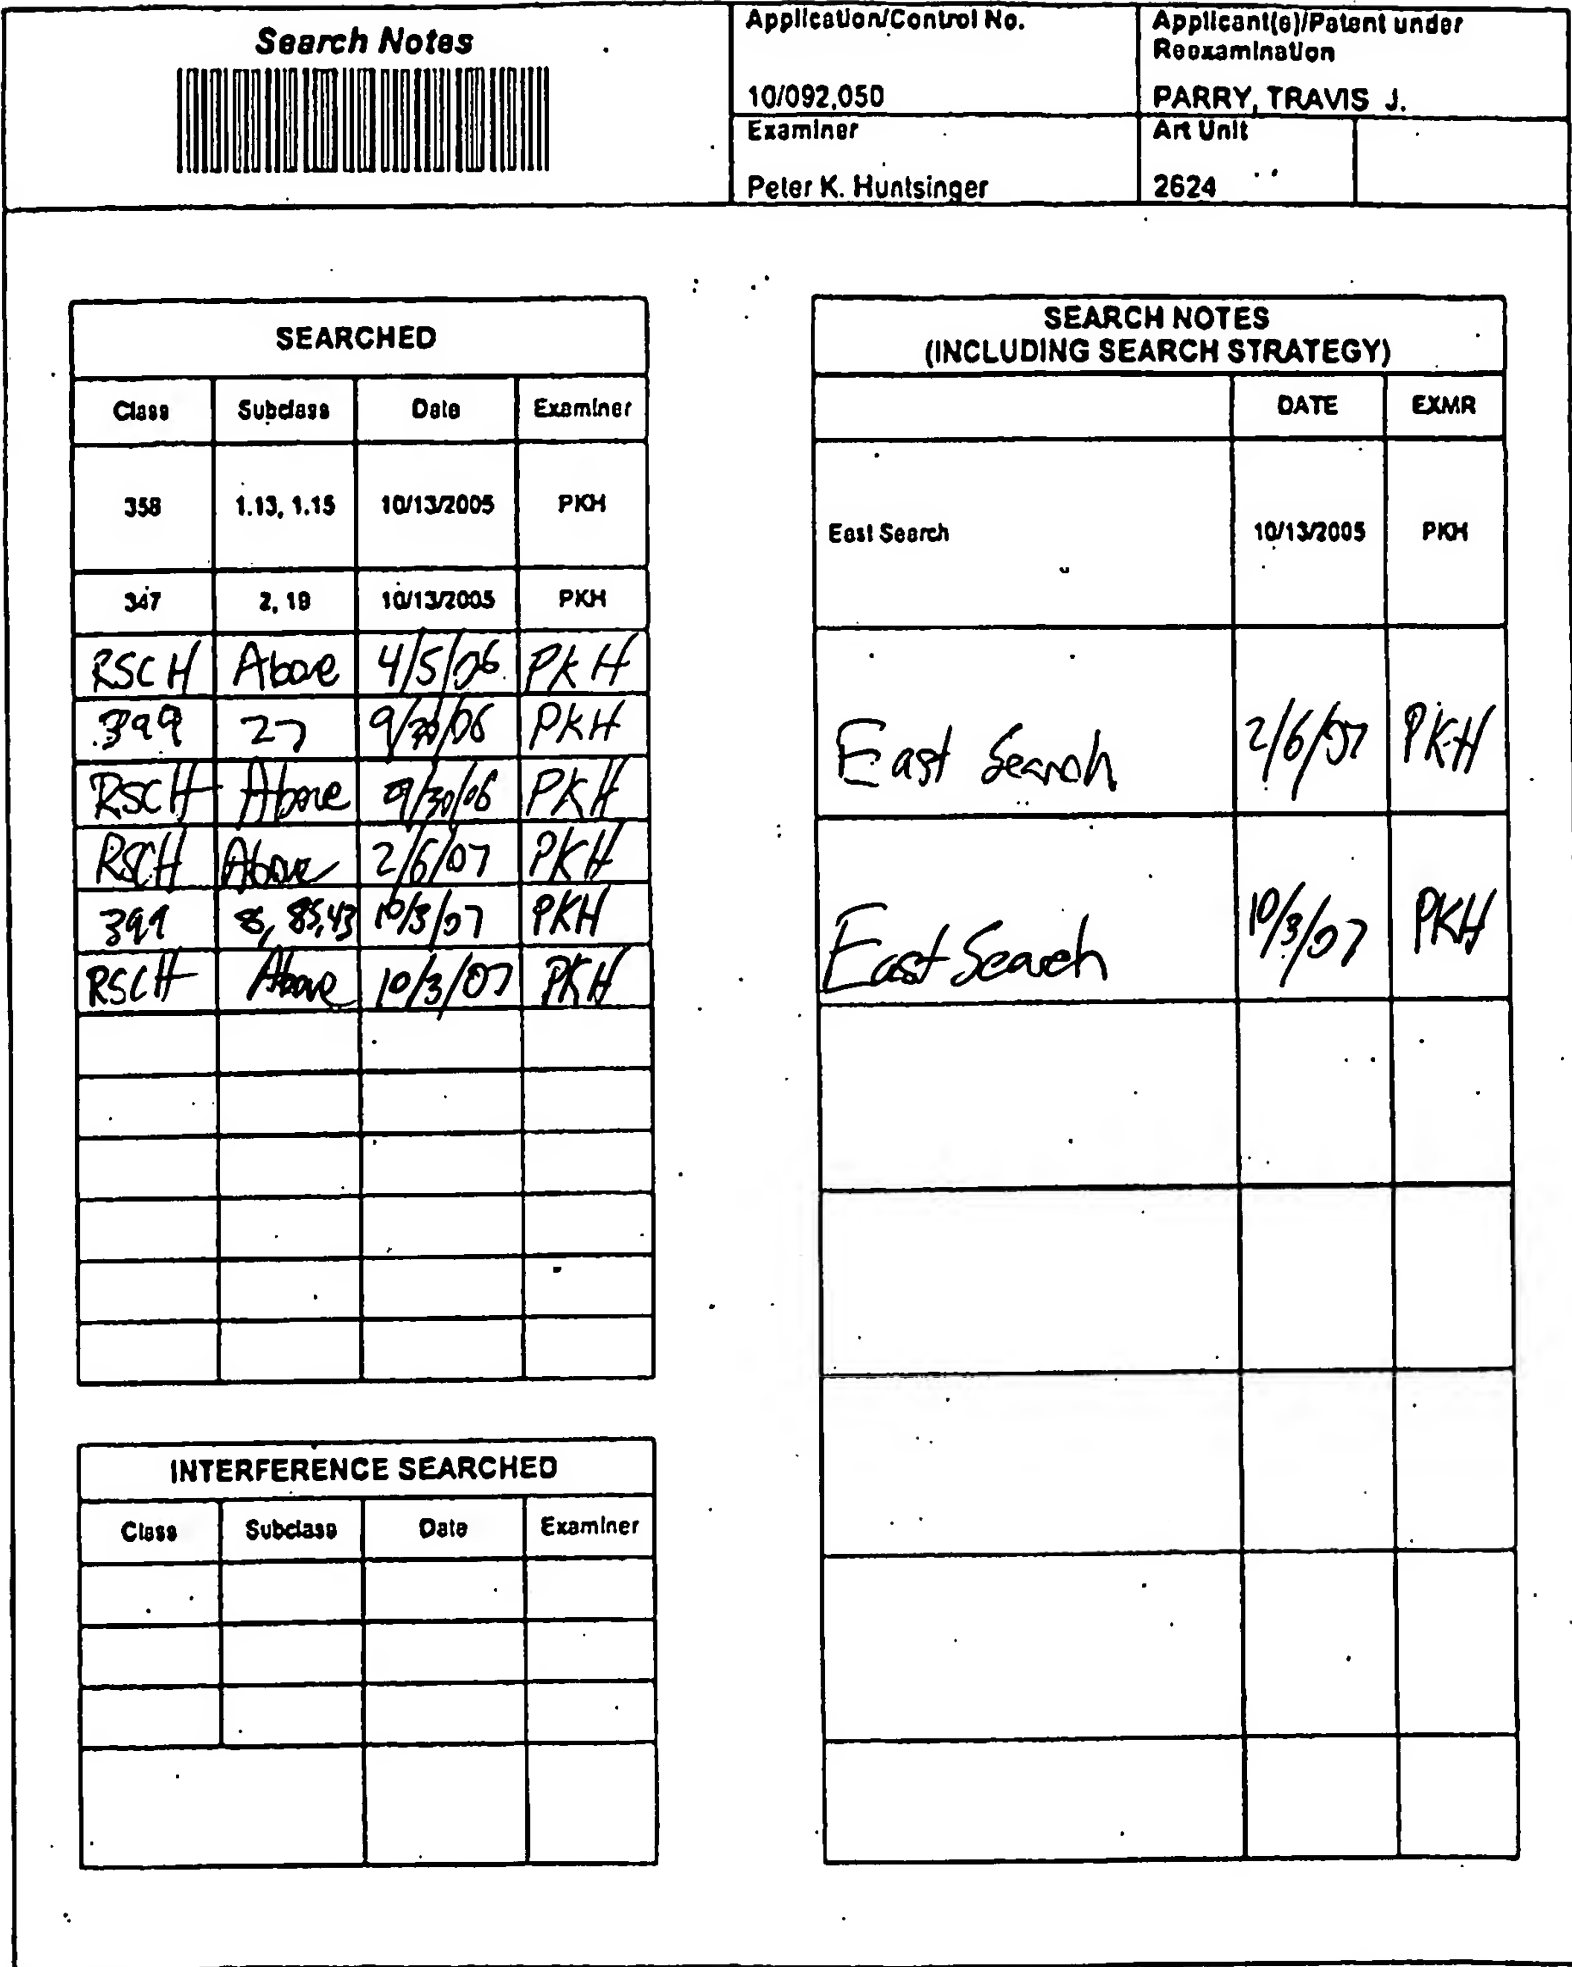 Search Notes
Application/Control No.
10/092,050
Applicant(s)/Patent under
Reexamination
PARRY, TRAVIS J.
Examiner
Peter K. Huntsinger
Art Unit
2624
SEARCHED
Class Subclass Date Examiner
358 1.13, 1.15 10/13/2005 PKH
347 2, 19 10/13/2005 PKH
RSCH Above 4/5/06 PKH
399 27 9/30/06 PKH
RSCH Above 9/30/06 PKH
RSCH Above 2/6/07 PKH
399 8, 85, 43 10/3/07 PKH
RSCH Above 10/3/07 PKH
INTERFERENCE SEARCHED
Class Subclass Date Examiner
SEARCH NOTES
(INCLUDING SEARCH STRATEGY)
DATE EXMR
East Search 10/13/2005 PKH
East Search 2/6/07 PKH
East Search 10/3/07 PKH